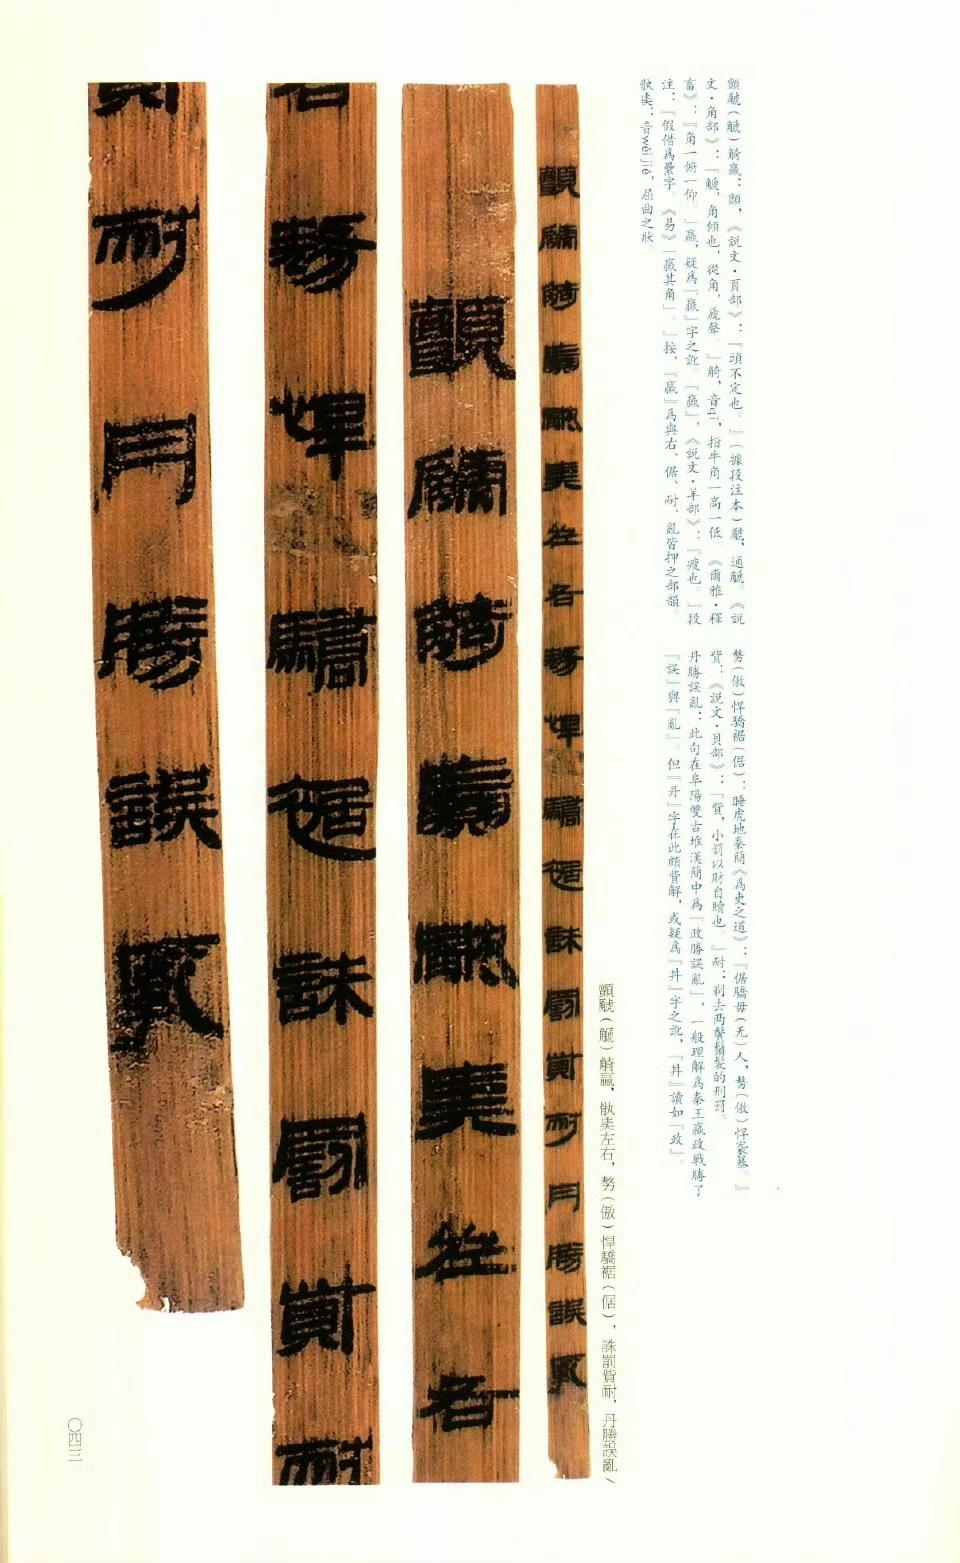 顫䚦(觿)觭羸:顫,《説文·頁部》:『頭不定也。』(據段注本)䚦,通觿。《説
文·角部》:『觿,角傾也,從角,虒聲。』觭,音qī,指牛角一高一低。《爾雅·釋
畜》:『角一俯一仰。』羸,疑爲『羸』字之訛。『羸』,《説文·羊部》:『瘦也。』段
注:『假借爲纍字。《易》「羸其角」。』按,『羸』爲與右、倨、耐、亂皆押之部韻。
骫奊:音wěi jié,屈曲之狀。
勢(傲)悍驕裾(倨):睡虎地秦簡《爲吏之道》:『倨驕毋(无)人,勢(傲)悍袤暴。』
貲:《説文·貝部》:『貲,小罰以財自贖也。』耐:剃去两鬢鬚髮的刑罰。
丹勝誤亂:此句在阜陽雙古堆漢簡中爲『政勝誤亂』,一般理解爲秦王嬴政戰勝了
『誤』與『亂』。但『丹』字在此頗費解,或疑爲『井』字之訛,『井』讀如『政』。
顫䚦(觿)觭羸,骫奊左右,勢(傲)悍驕裾(倨),誅罰貲耐,丹勝誤亂、
顫觭骫奊左右悍驕裾誅罰貲耐丹勝誤亂
顫觭骫奊左右
右悍驕裾誅罰貲耐
貲耐丹勝誤亂
〇四三